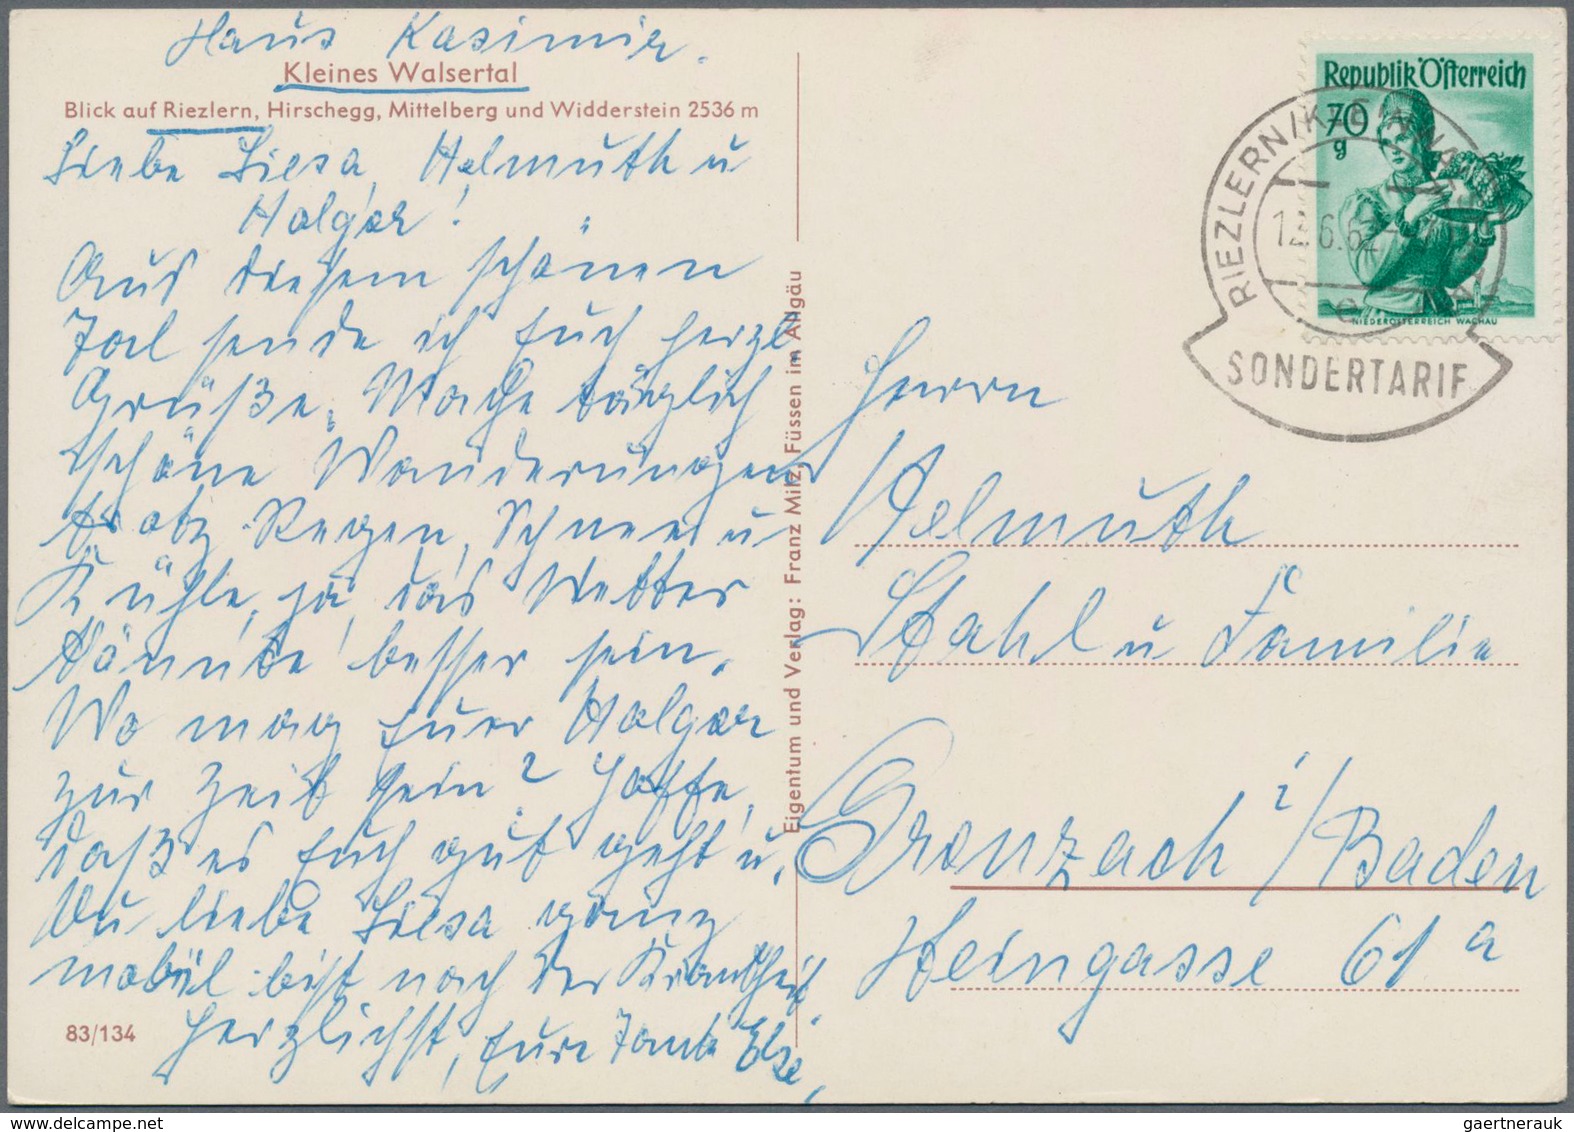 Haus Kasimir.
Kleines Walsertal
Blick auf Riezlern, Hirschegg, Mittelberg und Widderstein 2536 m
Liebe Liesa, Helmuth u
Holger!
Aus diesem schönen
Tal sende ich Euch herzl.
Grüße. Mache täglich
schöne Wanderungen
trotz Regen, Schnee u
Kühle, ja, das Wetter
könnte besser sein.
Wo mag Euer Holger
zur Zeit sein? Hoffe,
daß es Euch gut geht u.
Du liebe Liesa ganz
mobil bist nach der Krankheit.
Herzlichst, Eure Tante Else,
83/134
Eigentum und Verlag: Franz Milz, Füssen im Allgäu
Republik Österreich
70
g
NIEDERÖSTERREICH WACHAU
RIEZLERN/KLEINWALSERTAL
12.6.62
e
SONDERTARIF
Herrn
Helmuth
Stahl u Familie
Grenzach i/Baden
Heingasse 61 a
gaertnerauk